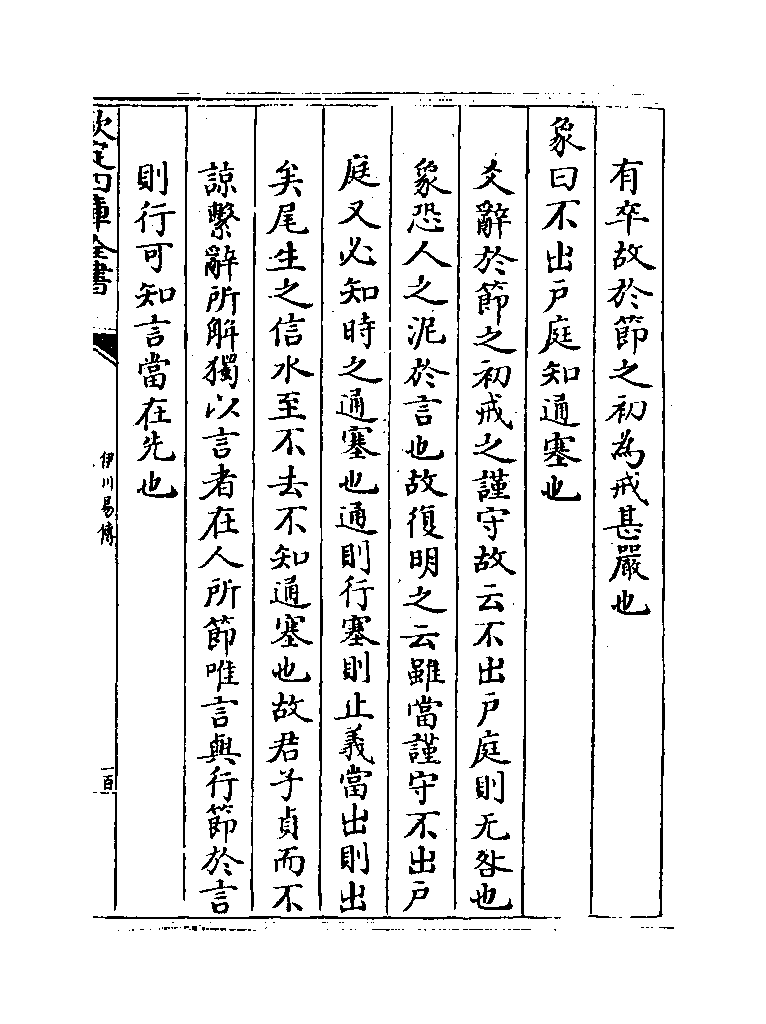 有卒故於節之初為戒甚嚴也
象曰不出戸庭知通塞也
爻辭於節之初戒之謹守故云不出戸庭則无咎也
象恐人之泥於言也故復明之云雖當謹守不出戸
庭又必知時之通塞也通則行塞則止義當出則出
矣尾生之信水至不去不知通塞也故君子貞而不
諒繫辭所解獨以言者在人所節唯言與行節於言
則行可知言當在先也
欽定四庫全書
伊川易傳
一百